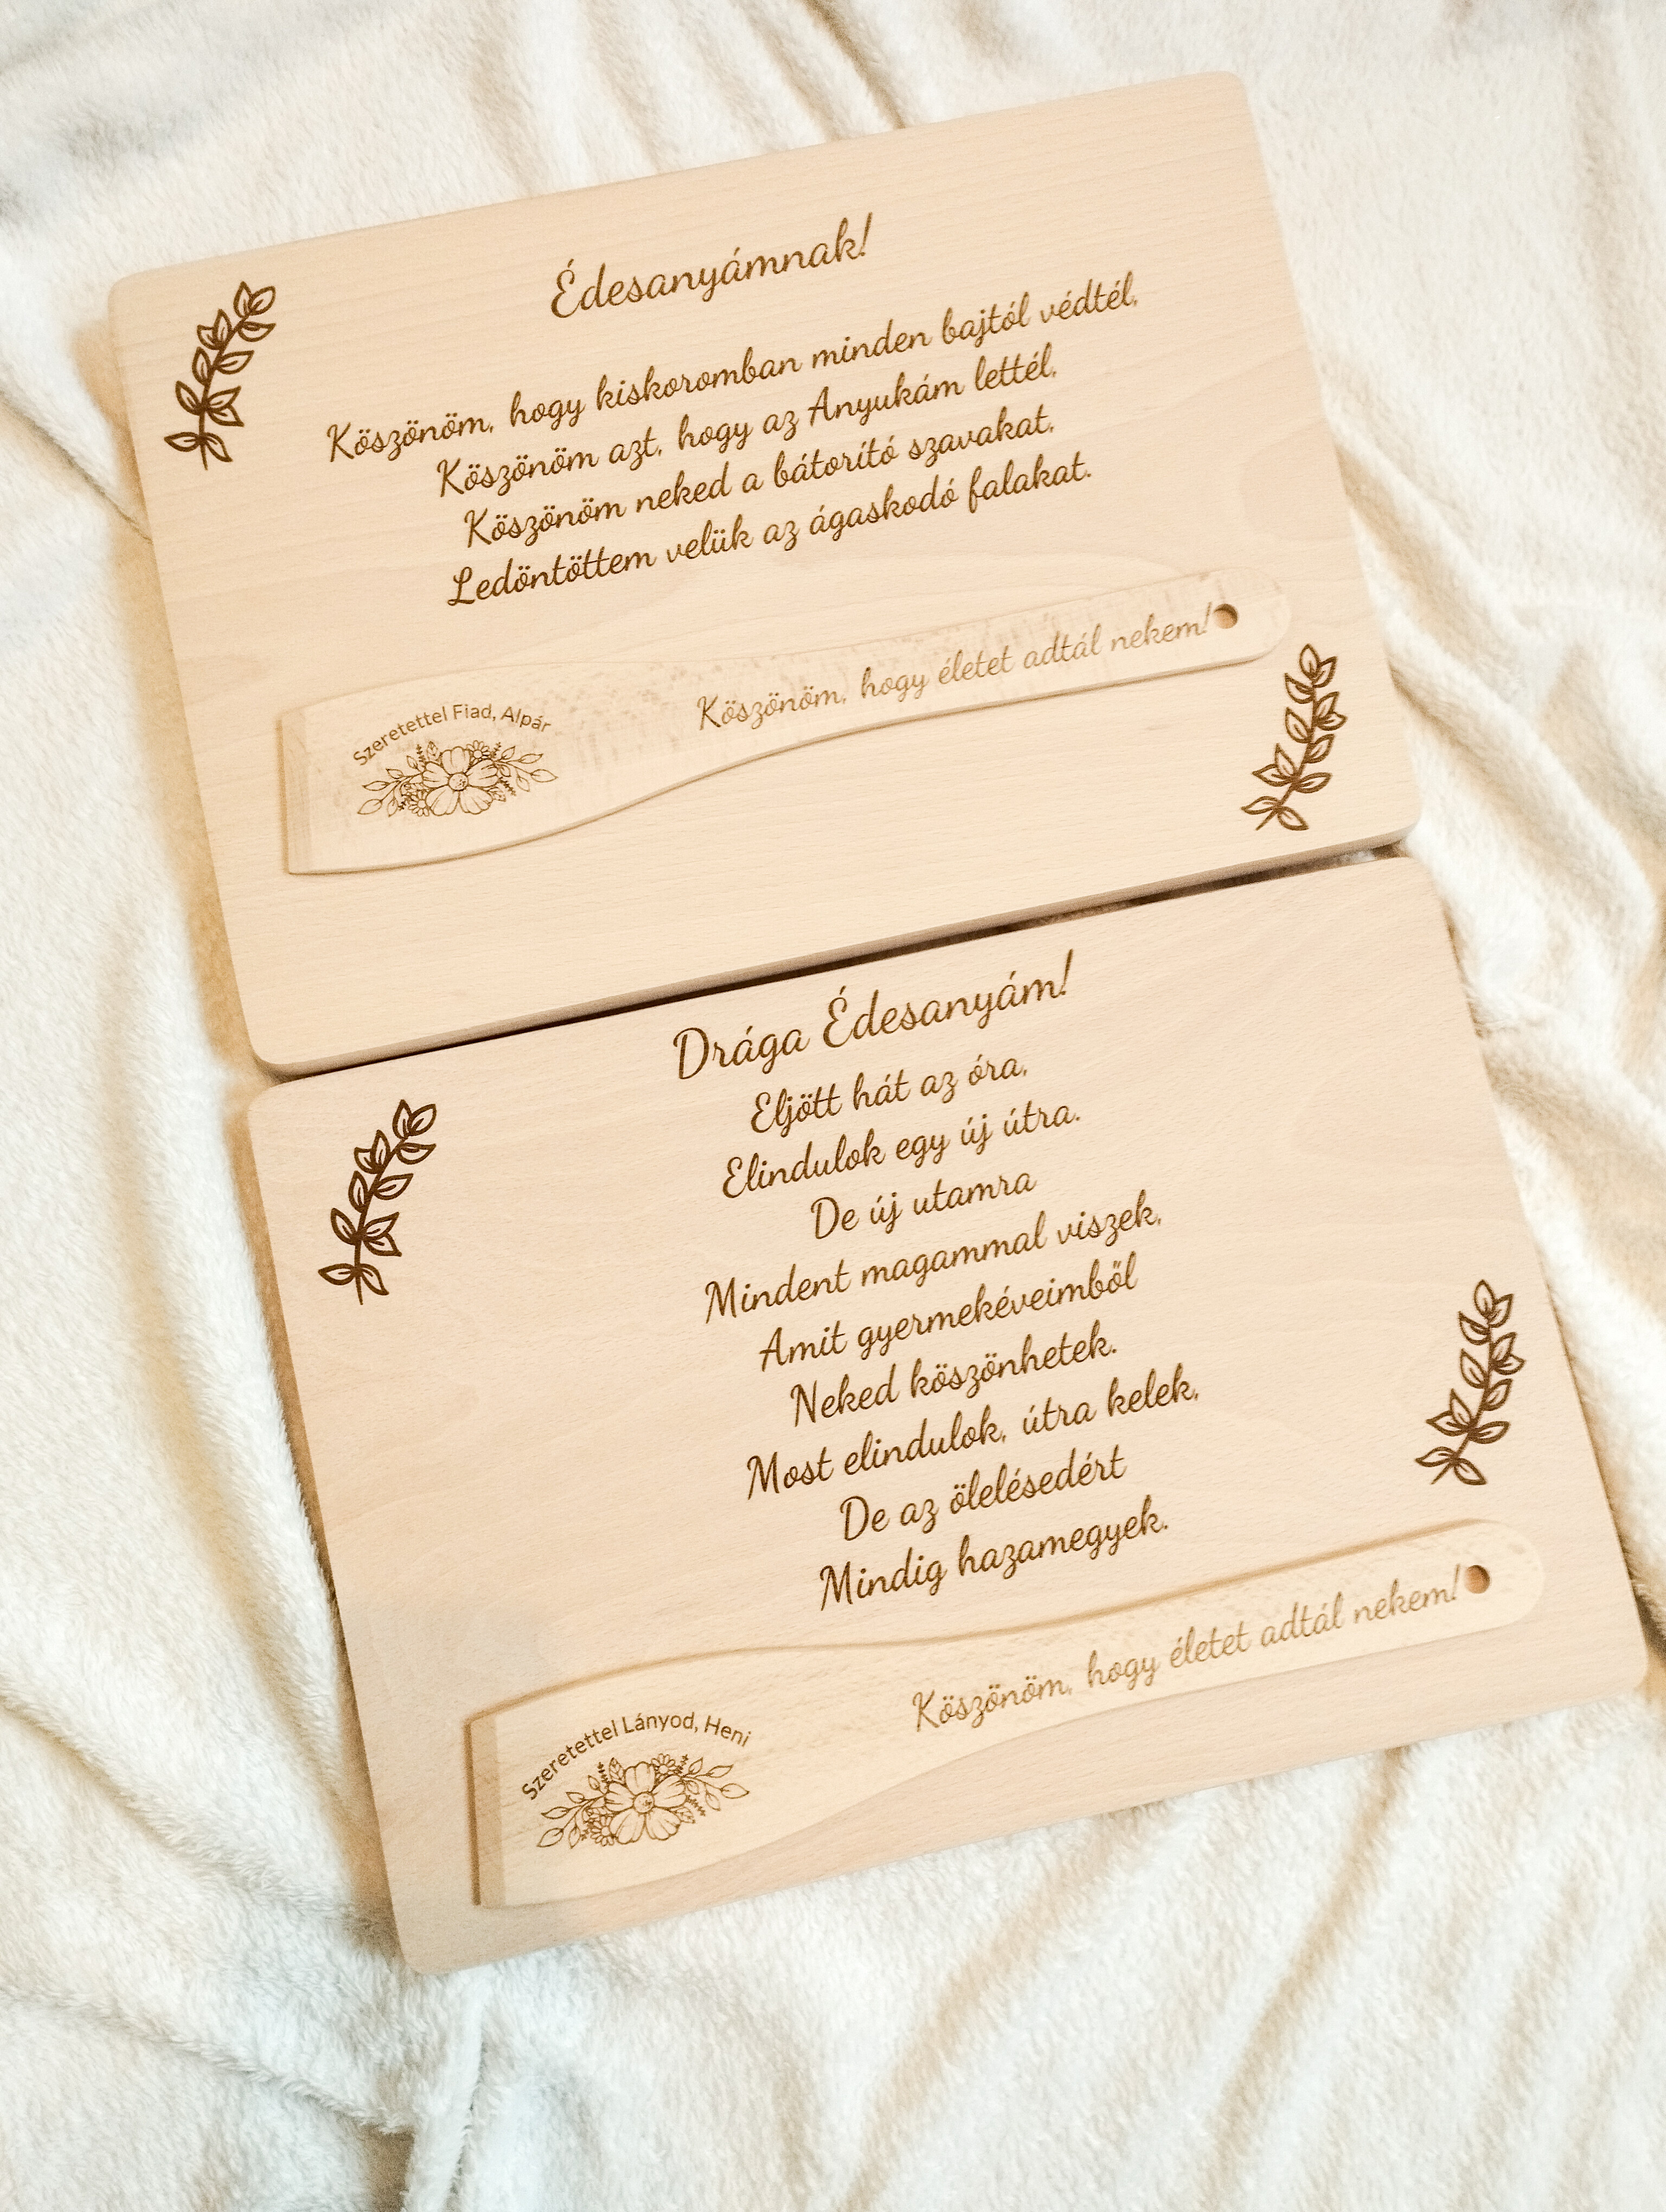 Édesanyámnak!
Köszönöm, hogy kiskoromban minden bajtól védtél,
Köszönöm azt, hogy az Anyukám lettél,
Köszönöm neked a bátorító szavakat,
Ledöntöttem velük az ágaskodó falakat.
Köszönöm, hogy életet adtál nekem!
Szeretettel Fiad, Alpár
Drága Édesanyám!
Eljött hát az óra,
Elindulok egy új útra.
De új utamra
Mindent magammal viszek,
Amit gyermekéveimből
Neked köszönhetek.
Most elindulok, útra kelek,
De az ölelésedért
Mindig hazamegyek.
Köszönöm, hogy életet adtál nekem!
Szeretettel Lányod, Heni